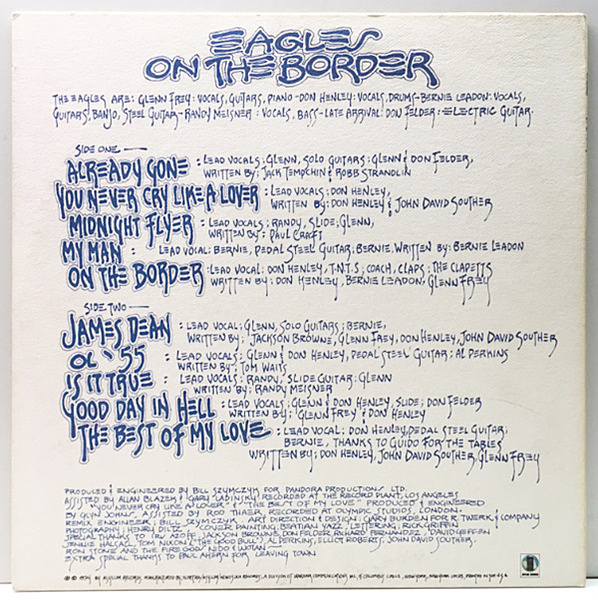 EAGLES
ON THE BORDER
THE EAGLES ARE: GLENN FREY: VOCALS, GUITARS, PIANO - DON HENLEY: VOCALS, DRUMS - BERNIE LEADON: VOCALS,
GUITARS, BANJO, STEEL GUITAR - RANDY MEISNER: VOCALS, BASS - LATE ARRIVAL: DON FELDER: ELECTRIC GUITAR.
SIDE ONE —
ALREADY GONE : LEAD VOCALS: GLENN, SOLO GUITARS: GLENN & DON FELDER,
WRITTEN BY: JACK TEMPCHIN & ROBB STRANDLIN
YOU NEVER CRY LIKE A LOVER : LEAD VOCALS: DON HENLEY,
WRITTEN BY: DON HENLEY & JOHN DAVID SOUTHER
MIDNIGHT FLYER : LEAD VOCALS: RANDY, SLIDE; GLENN,
WRITTEN BY: PAUL CRAFT
MY MAN : LEAD VOCAL: BERNIE, PEDAL STEEL GUITAR: BERNIE. WRITTEN BY: BERNIE LEADON
ON THE BORDER : LEAD VOCAL: DON HENLEY, T.N.T.S; COACH, CLAPS: THE CLAPETTS
WRITTEN BY: DON HENLEY, BERNIE LEADON, GLENN FREY
SIDE TWO —
JAMES DEAN : LEAD VOCAL: GLENN, SOLO GUITARS: BERNIE,
WRITTEN BY: JACKSON BROWNE, GLENN FREY, DON HENLEY, JOHN DAVID SOUTHER
OL '55 : LEAD VOCALS: GLENN & DON HENLEY, PEDAL STEEL GUITAR: AL PERKINS
WRITTEN BY: TOM WAITS
IS IT TRUE : LEAD VOCALS: RANDY, SLIDE GUITAR: GLENN
WRITTEN BY: RANDY MEISNER
GOOD DAY IN HELL : LEAD VOCALS: GLENN & DON HENLEY, SLIDE: DON FELDER
WRITTEN BY: GLENN FREY & DON HENLEY
THE BEST OF MY LOVE : LEAD VOCAL: DON HENLEY, PEDAL STEEL GUITAR:
BERNIE, THANKS TO GUIDO FOR THE TABLES
WRITTEN BY: DON HENLEY, JOHN DAVID SOUTHER, GLENN FREY
PRODUCED & ENGINEERED BY BILL SZYMCZYK FOR PANDORA PRODUCTIONS LTD.
ASSISTED BY ALLAN BLAZEK & GARY LADINSKY RECORDED AT THE RECORD PLANT, LOS ANGELES
"YOU NEVER CRY LIKE A LOVER" & "THE BEST OF MY LOVE" PRODUCED & ENGINEERED
BY GLYN JOHNS, ASSISTED BY ROD THAEAR, RECORDED AT OLYMPIC STUDIOS, LONDON.
REMIX ENGINEER: BILL SZYMCZYK ART DIRECTION & DESIGN: GARY BURDEN FOR R. TWERK & COMPANY
PHOTOGRAPHY: HENRY DILTZ COVER PAINTING: BEATIEN YAZZ LETTERING: RICK GRIFFIN
SPECIAL THANKS TO: IRV AZOFF, JACKSON BROWNE, DON FELDER, RICHARD FERNANDEZ, DAVID GEFFEN,
JENNIE HALSALL, TOM NIXON (THE GOOD BULL) AL PERKINS, ELLIOT ROBERTS, JOHN DAVID SOUTHER,
RON STONE AND THE FIRE GODS NEDO & WOTAN—
EXTRA SPECIAL THANKS TO PAUL AHERN FOR LEAVING TOWN